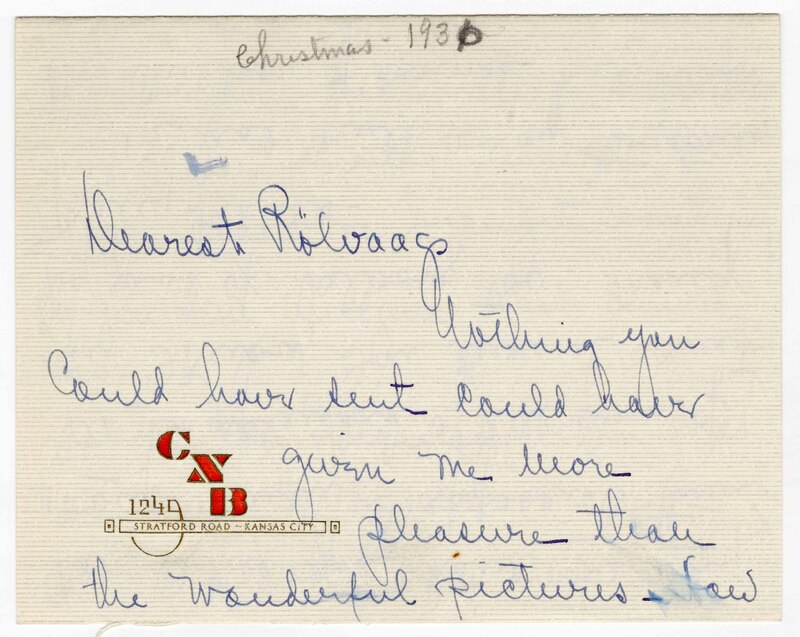 Christmas - 1936
Dearest Rölvaags
Nothing you
could have sent could have
given me more
pleasure than
the wonderful pictures.
CNB
1240
STRATFORD ROAD - KANSAS CITY